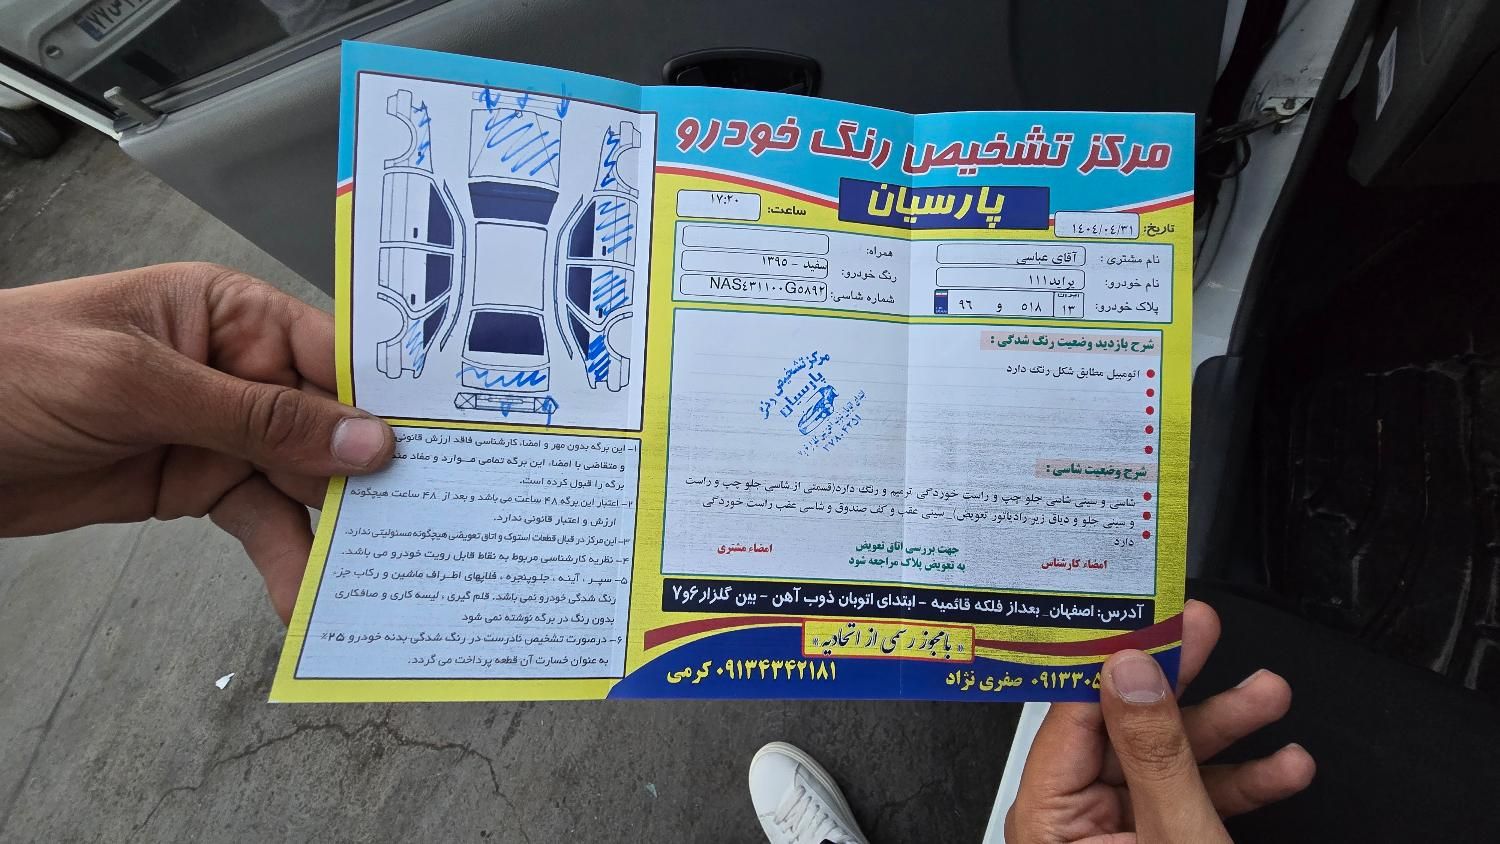 مرکز تشخیص رنگ خودرو
پارسیان
تاریخ: ۱۴۰۴/۰۴/۳۱
ساعت: ۱۷:۲۰
نام مشتری: آقای عباسی
همراه:
نام خودرو: پراید۱۱۱
رنگ خودرو: سفید - ۱۳۹۵
پلاک خودرو: ایران ۱۳ ۵۱۸ و ۹۶
شماره شاسی: NAS۴۳۱۱۰۰G۵۸۹۲
شرح بازدید وضعیت رنگ شدگی:
اتومبیل مطابق شکل رنگ دارد
مرکز تشخیص رنگ
پارسیان
شرح وضعیت شاسی:
شاسی و سینی شاسی جلو چپ و راست خوردگی ترمیم و رنگ دارد(قسمتی از شاسی جلو چپ و راست
و سینی جلو و دیاق زیر رادیاتور تعویض)_ سینی عقب و کف صندوق و شاسی عقب راست خوردگی
دارد
امضاء کارشناس
جهت بررسی اتاق تعویض
به تعویض پلاک مراجعه شود
امضاء مشتری
آدرس: اصفهان_ بعداز فلکه قائمیه - ابتدای اتوبان ذوب آهن - بین گلزار۶و۷
«بامجوز رسمی از اتحادیه»
صفری نژاد
۰۹۱۳۴۳۴۲۱۸۱ کرمی
۱- این برگه بدون مهر و امضاء کارشناسی فاقد ارزش قانونی
و متقاضی با امضاء این برگه تمامی مـوارد و مفاد
برگه را قبول کرده است.
۲- اعتبار این برگه ۴۸ ساعت می باشد و بعد از ۴۸ ساعت هیچگونه
ارزش و اعتبار قانونی ندارد.
۳- این مرکز در قبال قطعات استوک و اتاق تعویضی هیچگونه مسئولیتی ندارد.
۴- نظریه کارشناسی مربوط به نقاط قابل رویت خودرو می باشد.
۵- سپـر ، آینـه ، جلـوپنجره ، قلابهای اطـراف ماشین و رکاب جزء
رنگ شدگی خودرو نمی باشد. قلم گیری ، لیسه کاری و صافکاری
بدون رنگ در برگه نوشته نمی شود
۶- درصورت تشخیص نادرست در رنگ شدگی بدنه خودرو ۲۵٪
به عنوان خسارت آن قطعه پرداخت می گردد.